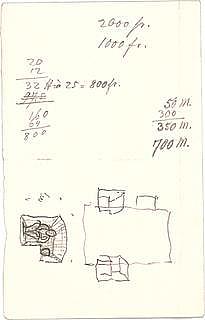 2000 fr.
1000 fr.
20
12
32 à 25 = 800 fr.
160
64
800
50 M.
300
350 M.
700 M.